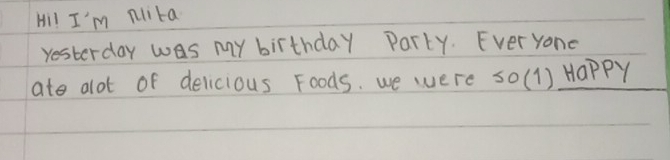 Hi! I'm Mita
Yesterday was my birthday Party. Everyone
ate alot of delicious Foods. we were so(1) HaPPY